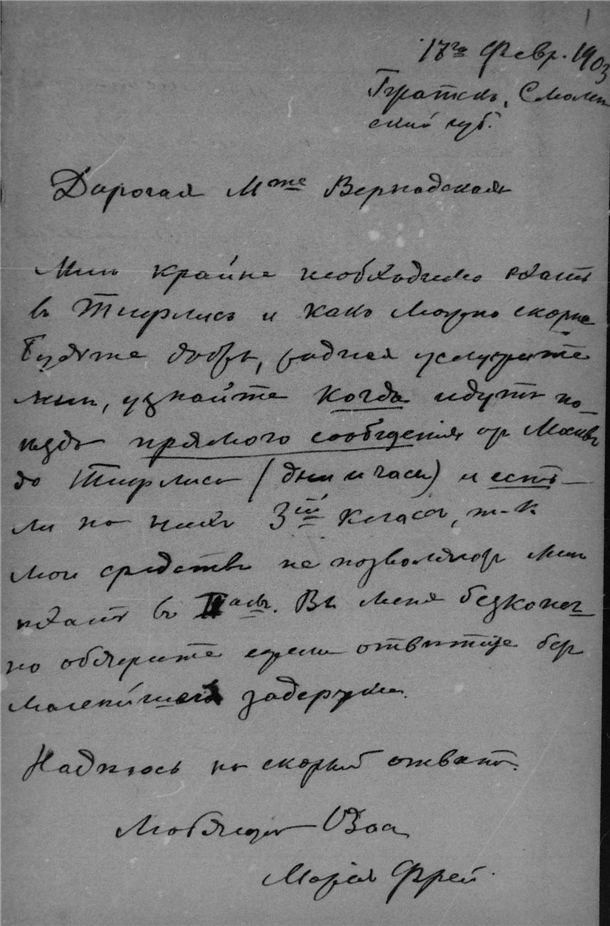 1
17го Февр. 1903
Смолен
ской губ.
Дорогая Mme Вернадская
Мнѣ крайне необходимо ѣхать
въ Тифлисъ и какъ можно скорѣе
Будьте добры, родная
мнѣ, узнайте когда идутъ по-
ѣзда прямого сообщенія отъ Москвы
до Тифлиса (дни и часы) и есть
ли на нихъ 3ій классъ, т. к.
мои средства не позволяютъ мнѣ
ѣхать въ II омъ. Вы меня безконеч
но обяжете если отвѣтите безъ
малѣйшей задержки.
Надѣюсь на скорый отвѣтъ.
Любящая Васъ
Марія Фрей.